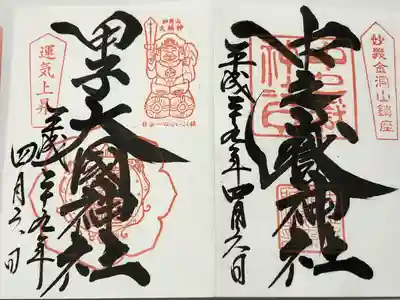 妙義金洞山鎮座
中之嶽神社
平成二十九年四月六日
甲子大国神社
運気上昇
平成二十九年
四月六日